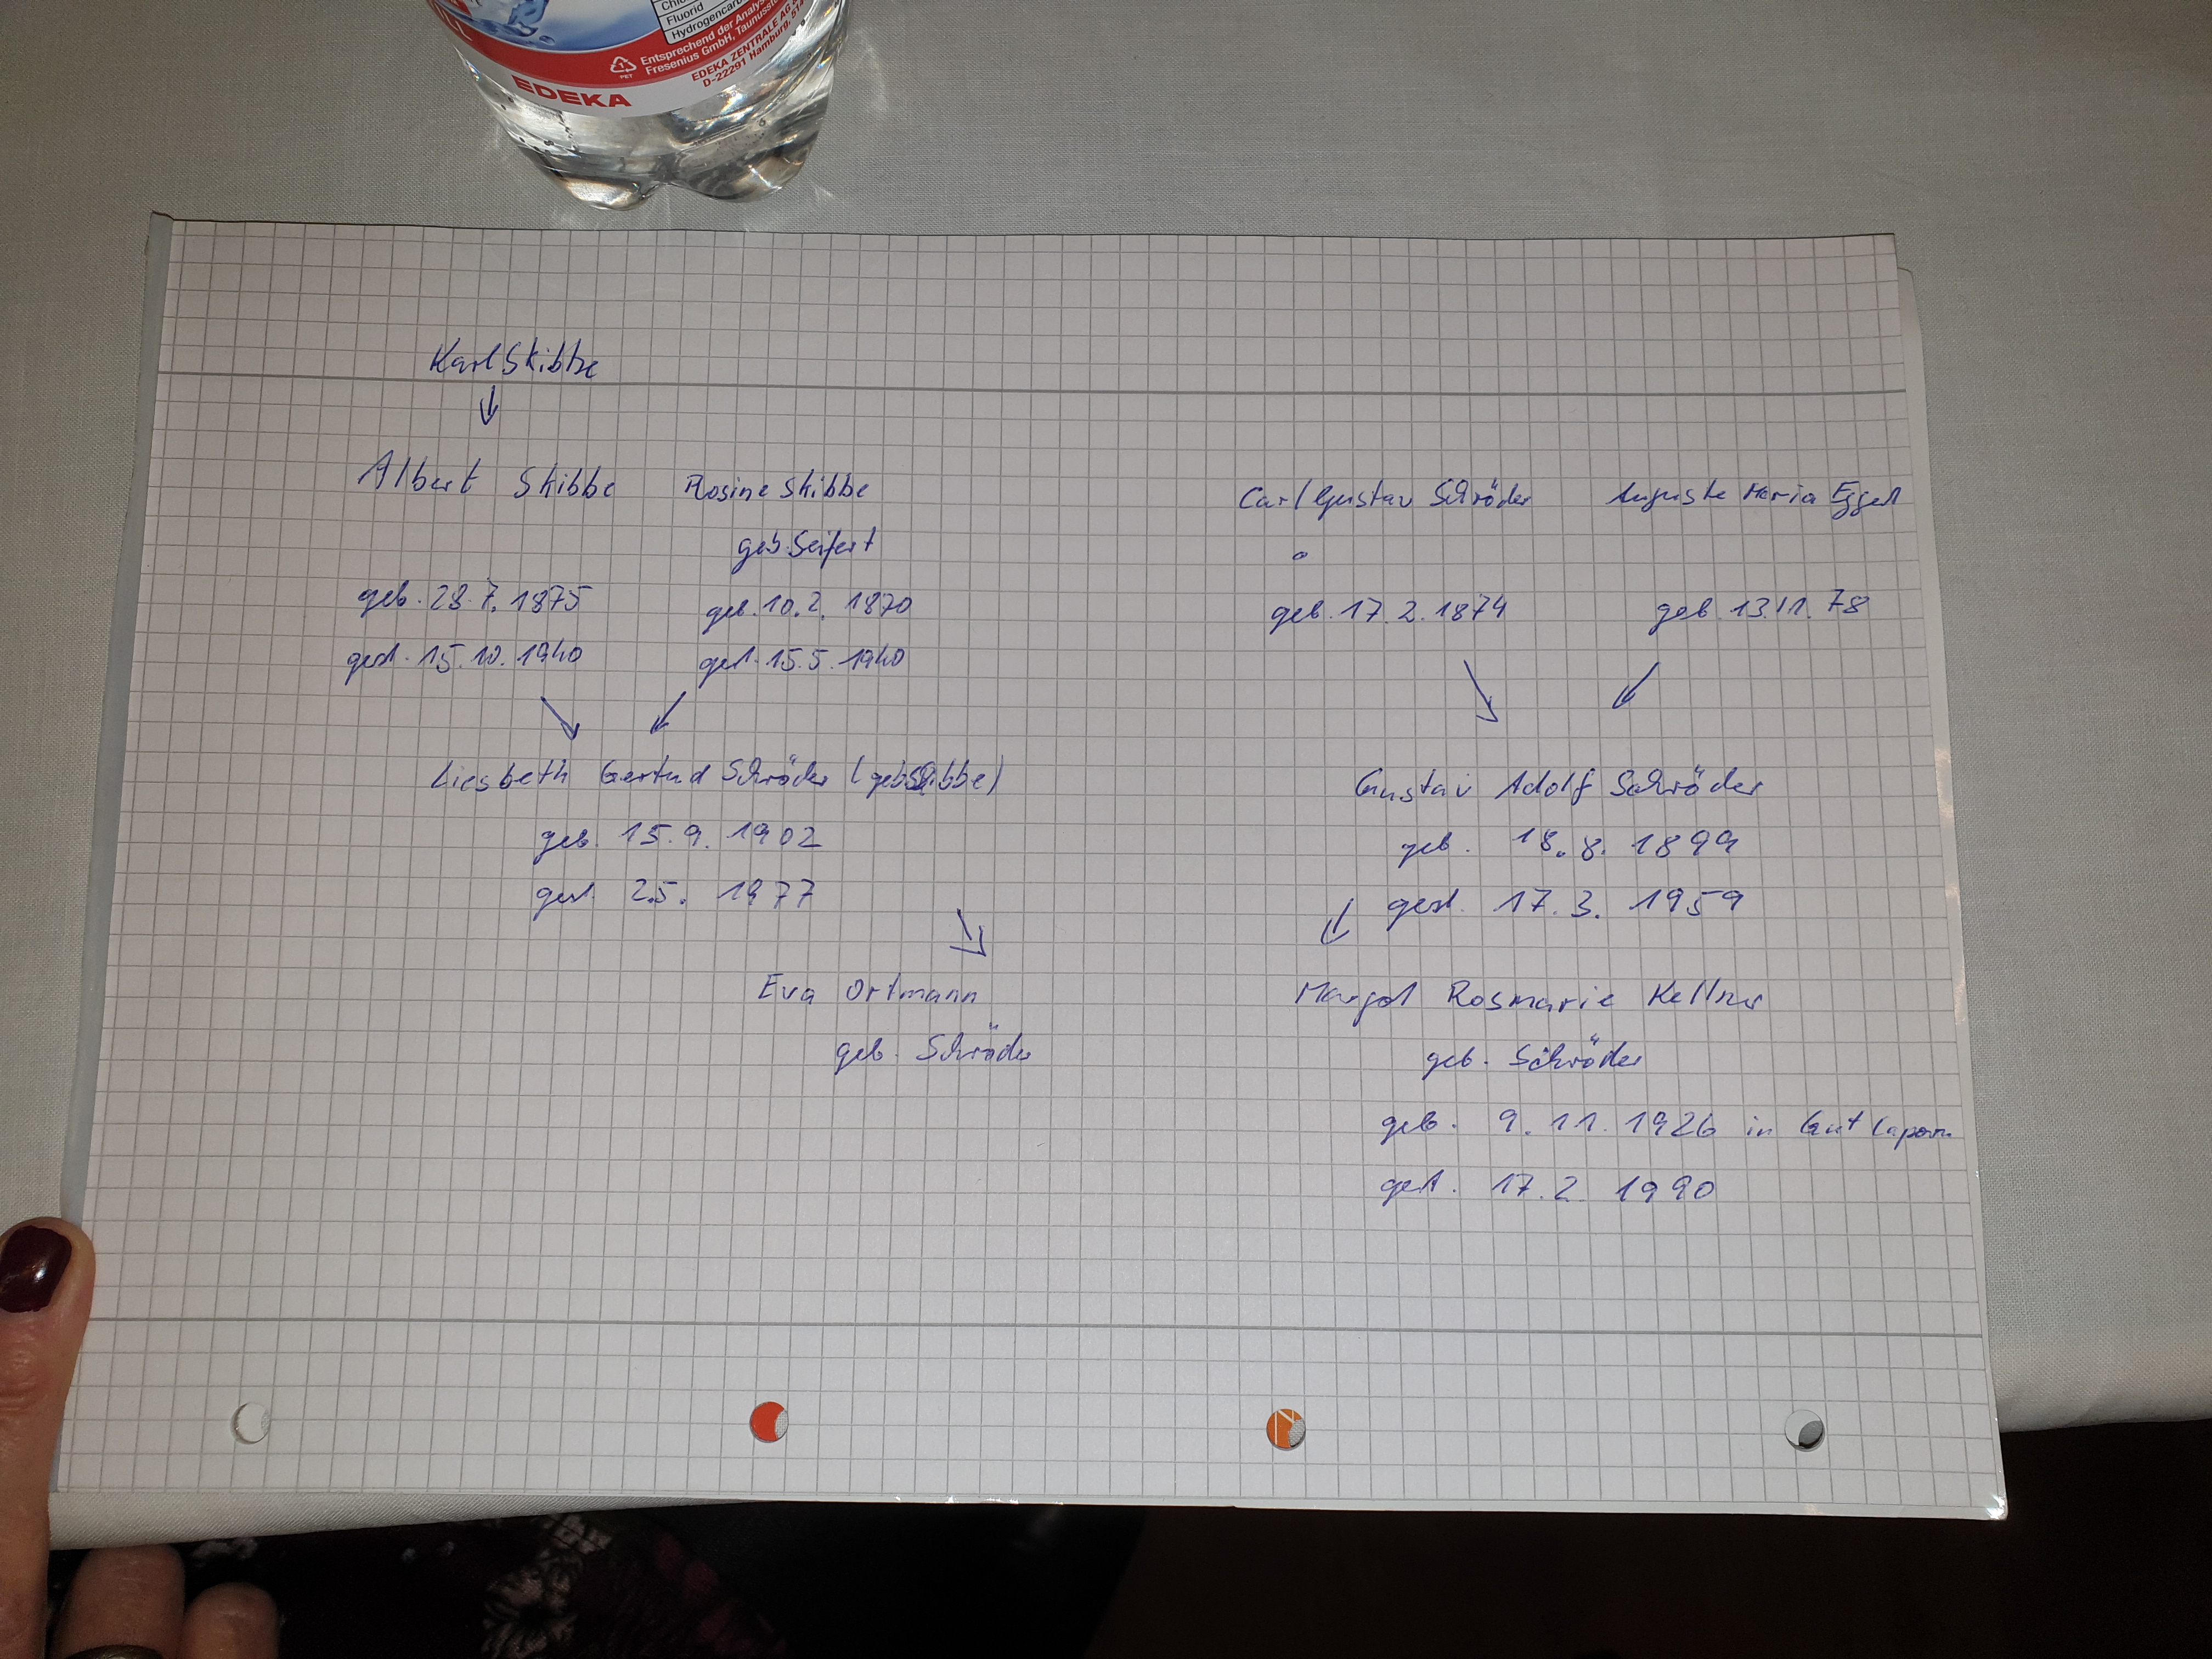 Fluorid
Entsprechend der Analyse
Fresenius GmbH, Taunusst
EDEKA ZENTRALE AG
D-22291 Hamburg
EDEKA
PET
Karl Skibbe
Albert Skibbe
geb. 28.7.1875
gest. 15.10.1940
Rosine Skibbe
geb. Seifert
geb. 10.2. 1870
gest. 15.5.1940
Carl Gustav Schröder
geb. 17.2.1874
Auguste Maria
geb. 13.11.78
Liesbeth Gertrud Schröder (geb. Skibbe)
geb. 15.9.1902
gest. 2.5. 1977
Gustav Adolf Schröder
geb. 18.8. 1899
gest. 17.3. 1959
Eva Ortmann
geb. Schröder
Margot Rosmarie Kellner
geb. Schröder
geb. 9.11.1926 in Gut
gest. 17.2 1990